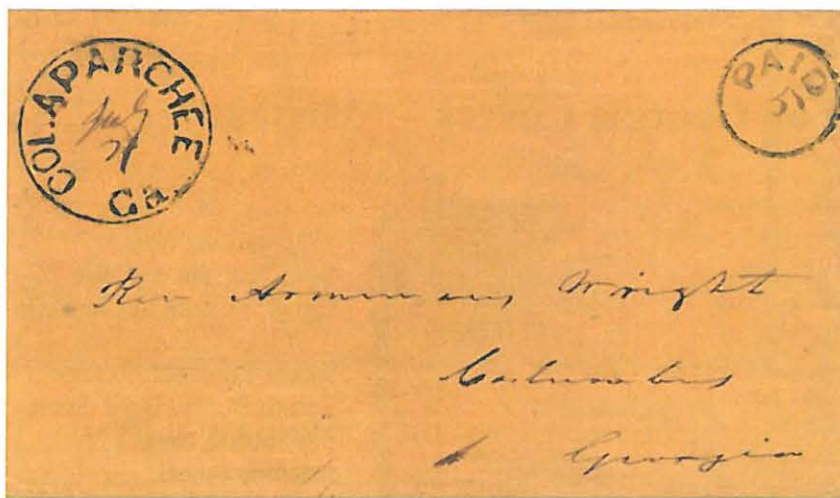 COL.APARCHEE
July
Ga.
PAID
Rev Armenius Wright
Columbus
Georgia